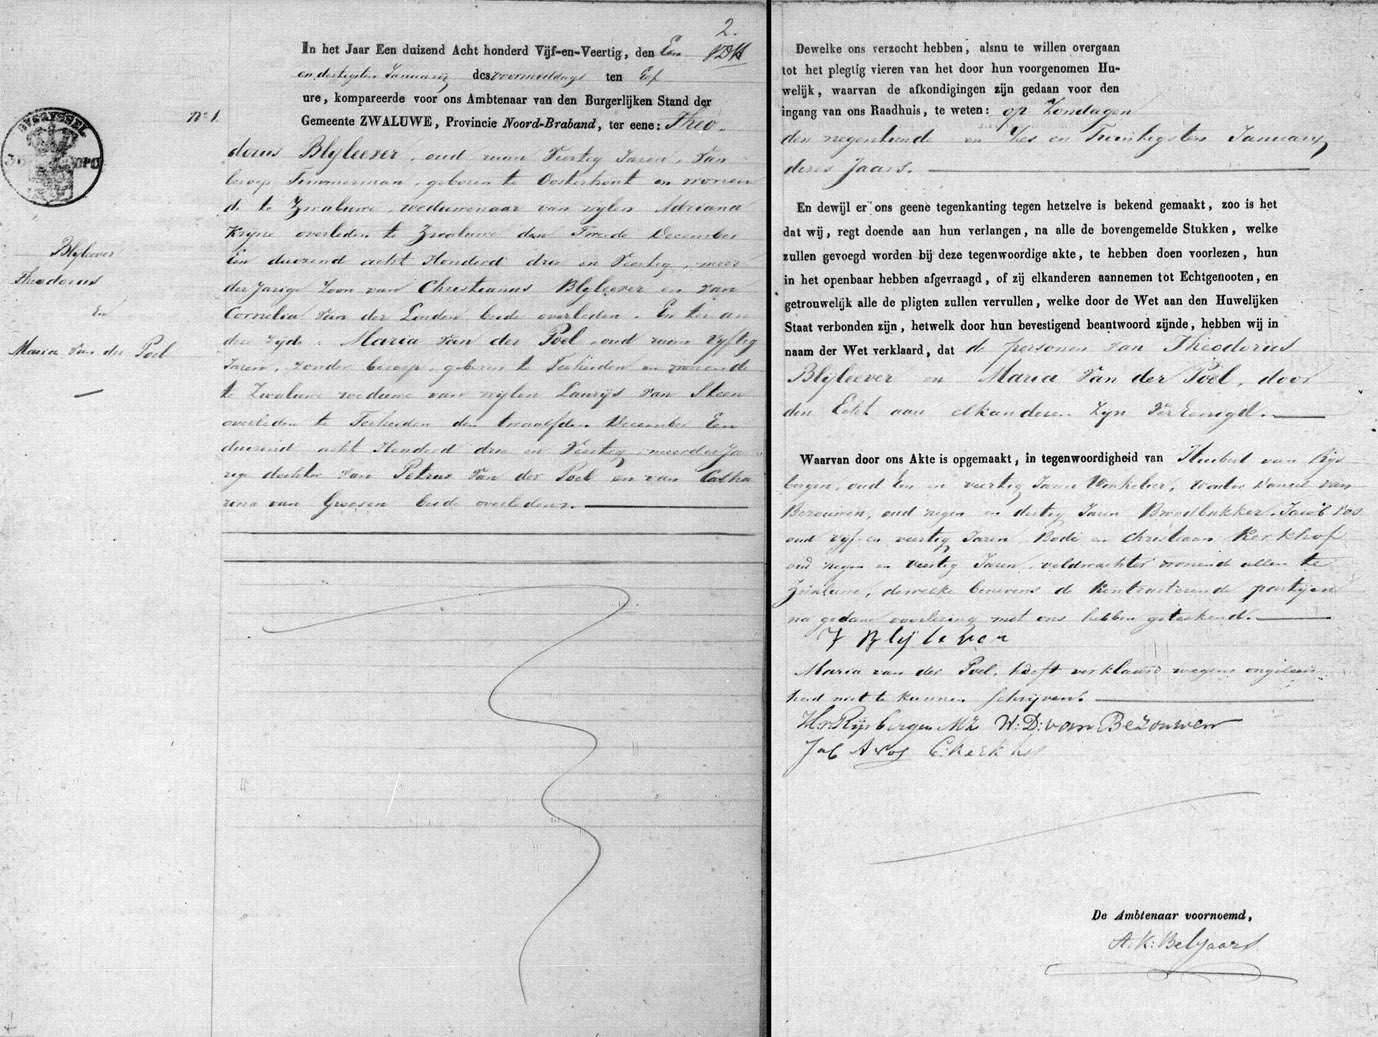 2.
In het Jaar Een duizend Acht honderd Vijf-en-Veertig, den Een
en dertigsten January des voormiddags ten Elf
ure, kompareerde voor ons Ambtenaar van den Burgerlijken Stand der
Gemeente ZWALUWE, Provincie Noord-Braband, ter eene: Theo-
dorus Blyleever, oud ruim Veertig Jaren, van
beroep Timmerman, geboren te Oosterhout en wonen
de te Zwaluwe, weduwenaar van wylen Adriana
Kryne overleden te Zwaluwe den Tweede December
Een duizend acht Honderd drie en Veertig, meer
derjarige Zoon van Christianus Blyleever en van
Cornelia Van der Linden beide overleden. En ter an
dere Zyde. Maria Van der Poel, oud ruim Vyftig
Jaren, zonder beroep, geboren te Terheiden en wonende
te Zwaluwe weduwe van wylen Laurijs Van Steen
overleden te Terheiden den twaalfden December Een
duizend acht Honderd drie en Veertig, meerderja
rige dochter van Petrus Van der Poel en van Catha
rina van Groesen beide overleden.
No. 1.
OVERYSSEL
Blyleever
Theodorus
En
Maria Van der Poel
Dewelke ons verzocht hebben, alsnu te willen overgaan
tot het plegtig vieren van het door hun voorgenomen Hu-
welijk, waarvan de afkondigingen zijn gedaan voor den
ingang van ons Raadhuis, te weten: op Zondagen
den negentiende en Zes en Twintigsten January
dezes Jaars.
En dewijl er ons geene tegenkanting tegen hetzelve is bekend gemaakt, zoo is het
dat wij, regt doende aan hun verlangen, na alle de bovengemelde Stukken, welke
zullen gevoegd worden bij deze tegenwoordige akte, te hebben doen voorlezen, hun
in het openbaar hebben afgevraagd, of zij elkanderen aannemen tot Echtgenooten, en
getrouwelijk alle de pligten zullen vervullen, welke door de Wet aan den Huwelijken
Staat verbonden zijn, hetwelk door hun bevestigend beantwoord zijnde, hebben wij in
naam der Wet verklaard, dat de personen van Theodorus
Blyleever en Maria Van der Poel, door
den Echt aan elkanderen Zyn Vereenigd.
Waarvan door ons Akte is opgemaakt, in tegenwoordigheid van Huibert van Rys
bergen, oud Een en veertig Jaren Winkelier, Wouter Daniel van
Bezouwen, oud negen en dertig Jaren Broodbakker, Jacob Vos
oud vyf en veertig Jaren, Bode en Christiaan Kerkhof
oud negen en Veertig Jaren, veldwachter wonende allen te
Zwaluwe, dewelke benevens de kontracterende partijen
na gedane voorlezing met ons hebben geteekend.
T Blyleven
Maria van der Poel, heeft verklaard wegens ongeleerd
heid niet te kunnen schrijven.
H. v. Rijsbergen Mz W: D: van Bezouwen
Jab A Vos C: Kerkhof
De Ambtenaar voornoemd,
A. K: Beljaars